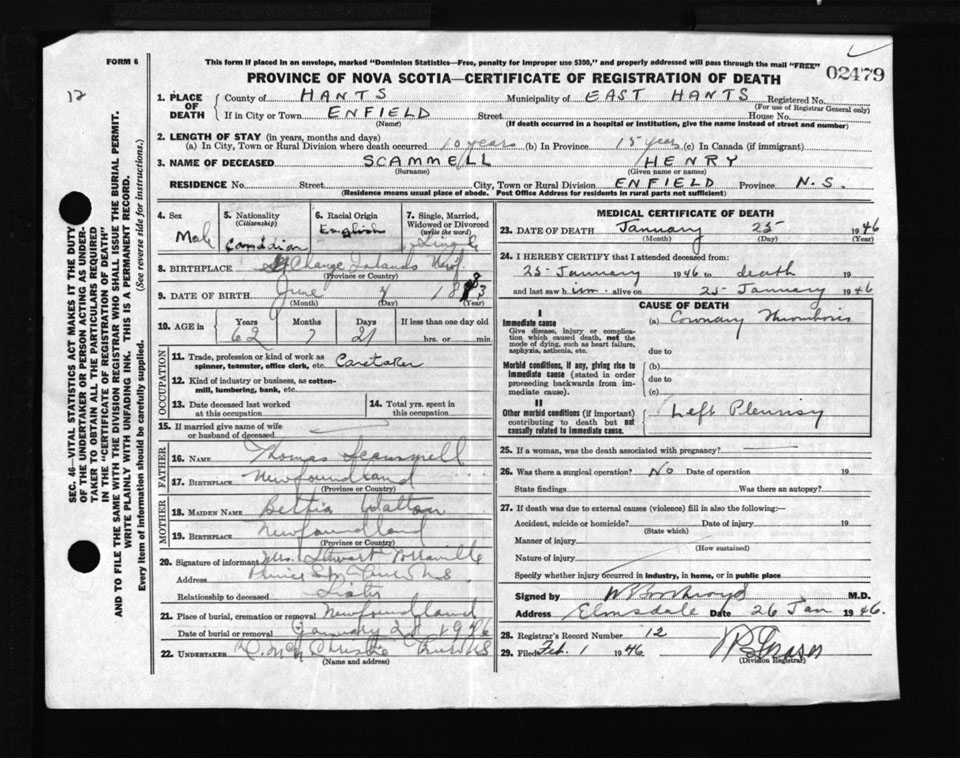 FORM 6
This form if placed in an envelope, marked "Dominion Statistics—Free, penalty for improper use $300," and properly addressed will pass through the mail "FREE"
PROVINCE OF NOVA SCOTIA—CERTIFICATE OF REGISTRATION OF DEATH
02479
12
SEC. 46—VITAL STATISTICS ACT MAKES IT THE DUTY
OF THE UNDERTAKER OR PERSON ACTING AS UNDER-
TAKER TO OBTAIN ALL THE PARTICULARS REQUIRED
IN THE "CERTIFICATE OF REGISTRATION OF DEATH"
AND TO FILE THE SAME WITH THE DIVISION REGISTRAR WHO SHALL ISSUE THE BURIAL PERMIT.
WRITE PLAINLY WITH UNFADING INK. THIS IS A PERMANENT RECORD.
Every item of information should be carefully supplied. (See reverse side for instructions.)
1. PLACE OF DEATH
County of HANTS Municipality of EAST HANTS Registered No.
(For use of Registrar General only)
If in City or Town ENFIELD Street House No.
(Name) (If death occurred in a hospital or institution, give the name instead of street and number)
2. LENGTH OF STAY (in years, months and days)
(a) In City, Town or Rural Division where death occurred 10 years (b) In Province 15 years (c) In Canada (if immigrant)
3. NAME OF DECEASED SCAMMELL HENRY
(Surname) (Given name or names)
RESIDENCE No. Street City, Town or Rural Division ENFIELD Province N.S.
(Residence means usual place of abode. Post Office Address for residents in rural parts not sufficient)
4. Sex Male
5. Nationality (Citizenship) Canadian
6. Racial Origin English
7. Single, Married, Widowed or Divorced (write the word) Single
8. BIRTHPLACE Change Islands Newf.
(Province or Country)
9. DATE OF BIRTH June
(Month) (Day) (Year)
10. AGE in Years Months Days If less than one day old
62 7 21 hrs. or min.
OCCUPATION
11. Trade, profession or kind of work as spinner, teamster, office clerk, etc. Caretaker
12. Kind of industry or business, as cotton-mill, lumbering, bank, etc.
13. Date deceased last worked at this occupation
14. Total yrs. spent in this occupation
15. If married give name of wife or husband of deceased
FATHER
16. NAME Thomas Scammell
17. BIRTHPLACE Newfoundland
(Province or Country)
MOTHER
18. MAIDEN NAME Walton
19. BIRTHPLACE Newfoundland
(Province or Country)
20. Signature of informant Mrs. Stewart
Address Prince St. Truro N.S.
Relationship to deceased Sister
21. Place of burial, cremation or removal Newfoundland
Date of burial or removal January 28 1946
22. UNDERTAKER Christie Truro N.S.
(Name and address)
MEDICAL CERTIFICATE OF DEATH
23. DATE OF DEATH January 25 1946
(Month) (Day) (Year)
24. I HEREBY CERTIFY that I attended deceased from:
25 January 1946 to death 19
and last saw him alive on 25 January 1946
CAUSE OF DEATH
I
Immediate cause
Give disease, injury or complication which caused death, not the mode of dying, such as heart failure, asphyxia, asthenia, etc.
(a) Coronary Thrombosis
due to
Morbid conditions, if any, giving rise to immediate cause (stated in order proceeding backwards from immediate cause).
(b)
due to
(c)
II
Other morbid conditions (if important) contributing to death but not causally related to immediate cause.
Left Pleurisy
25. If a woman, was the death associated with pregnancy?
26. Was there a surgical operation? No Date of operation 19
State findings Was there an autopsy?
27. If death was due to external causes (violence) fill in also the following:—
Accident, suicide or homicide? Date of injury 19
(State which)
Manner of injury
(How sustained)
Nature of injury
Specify whether injury occurred in industry, in home, or in public place
Signed by M.D.
Address Elmsdale Date 26 Jan 1946.
28. Registrar's Record Number 12
29. Filed Feb. 1 1946
(Division Registrar)